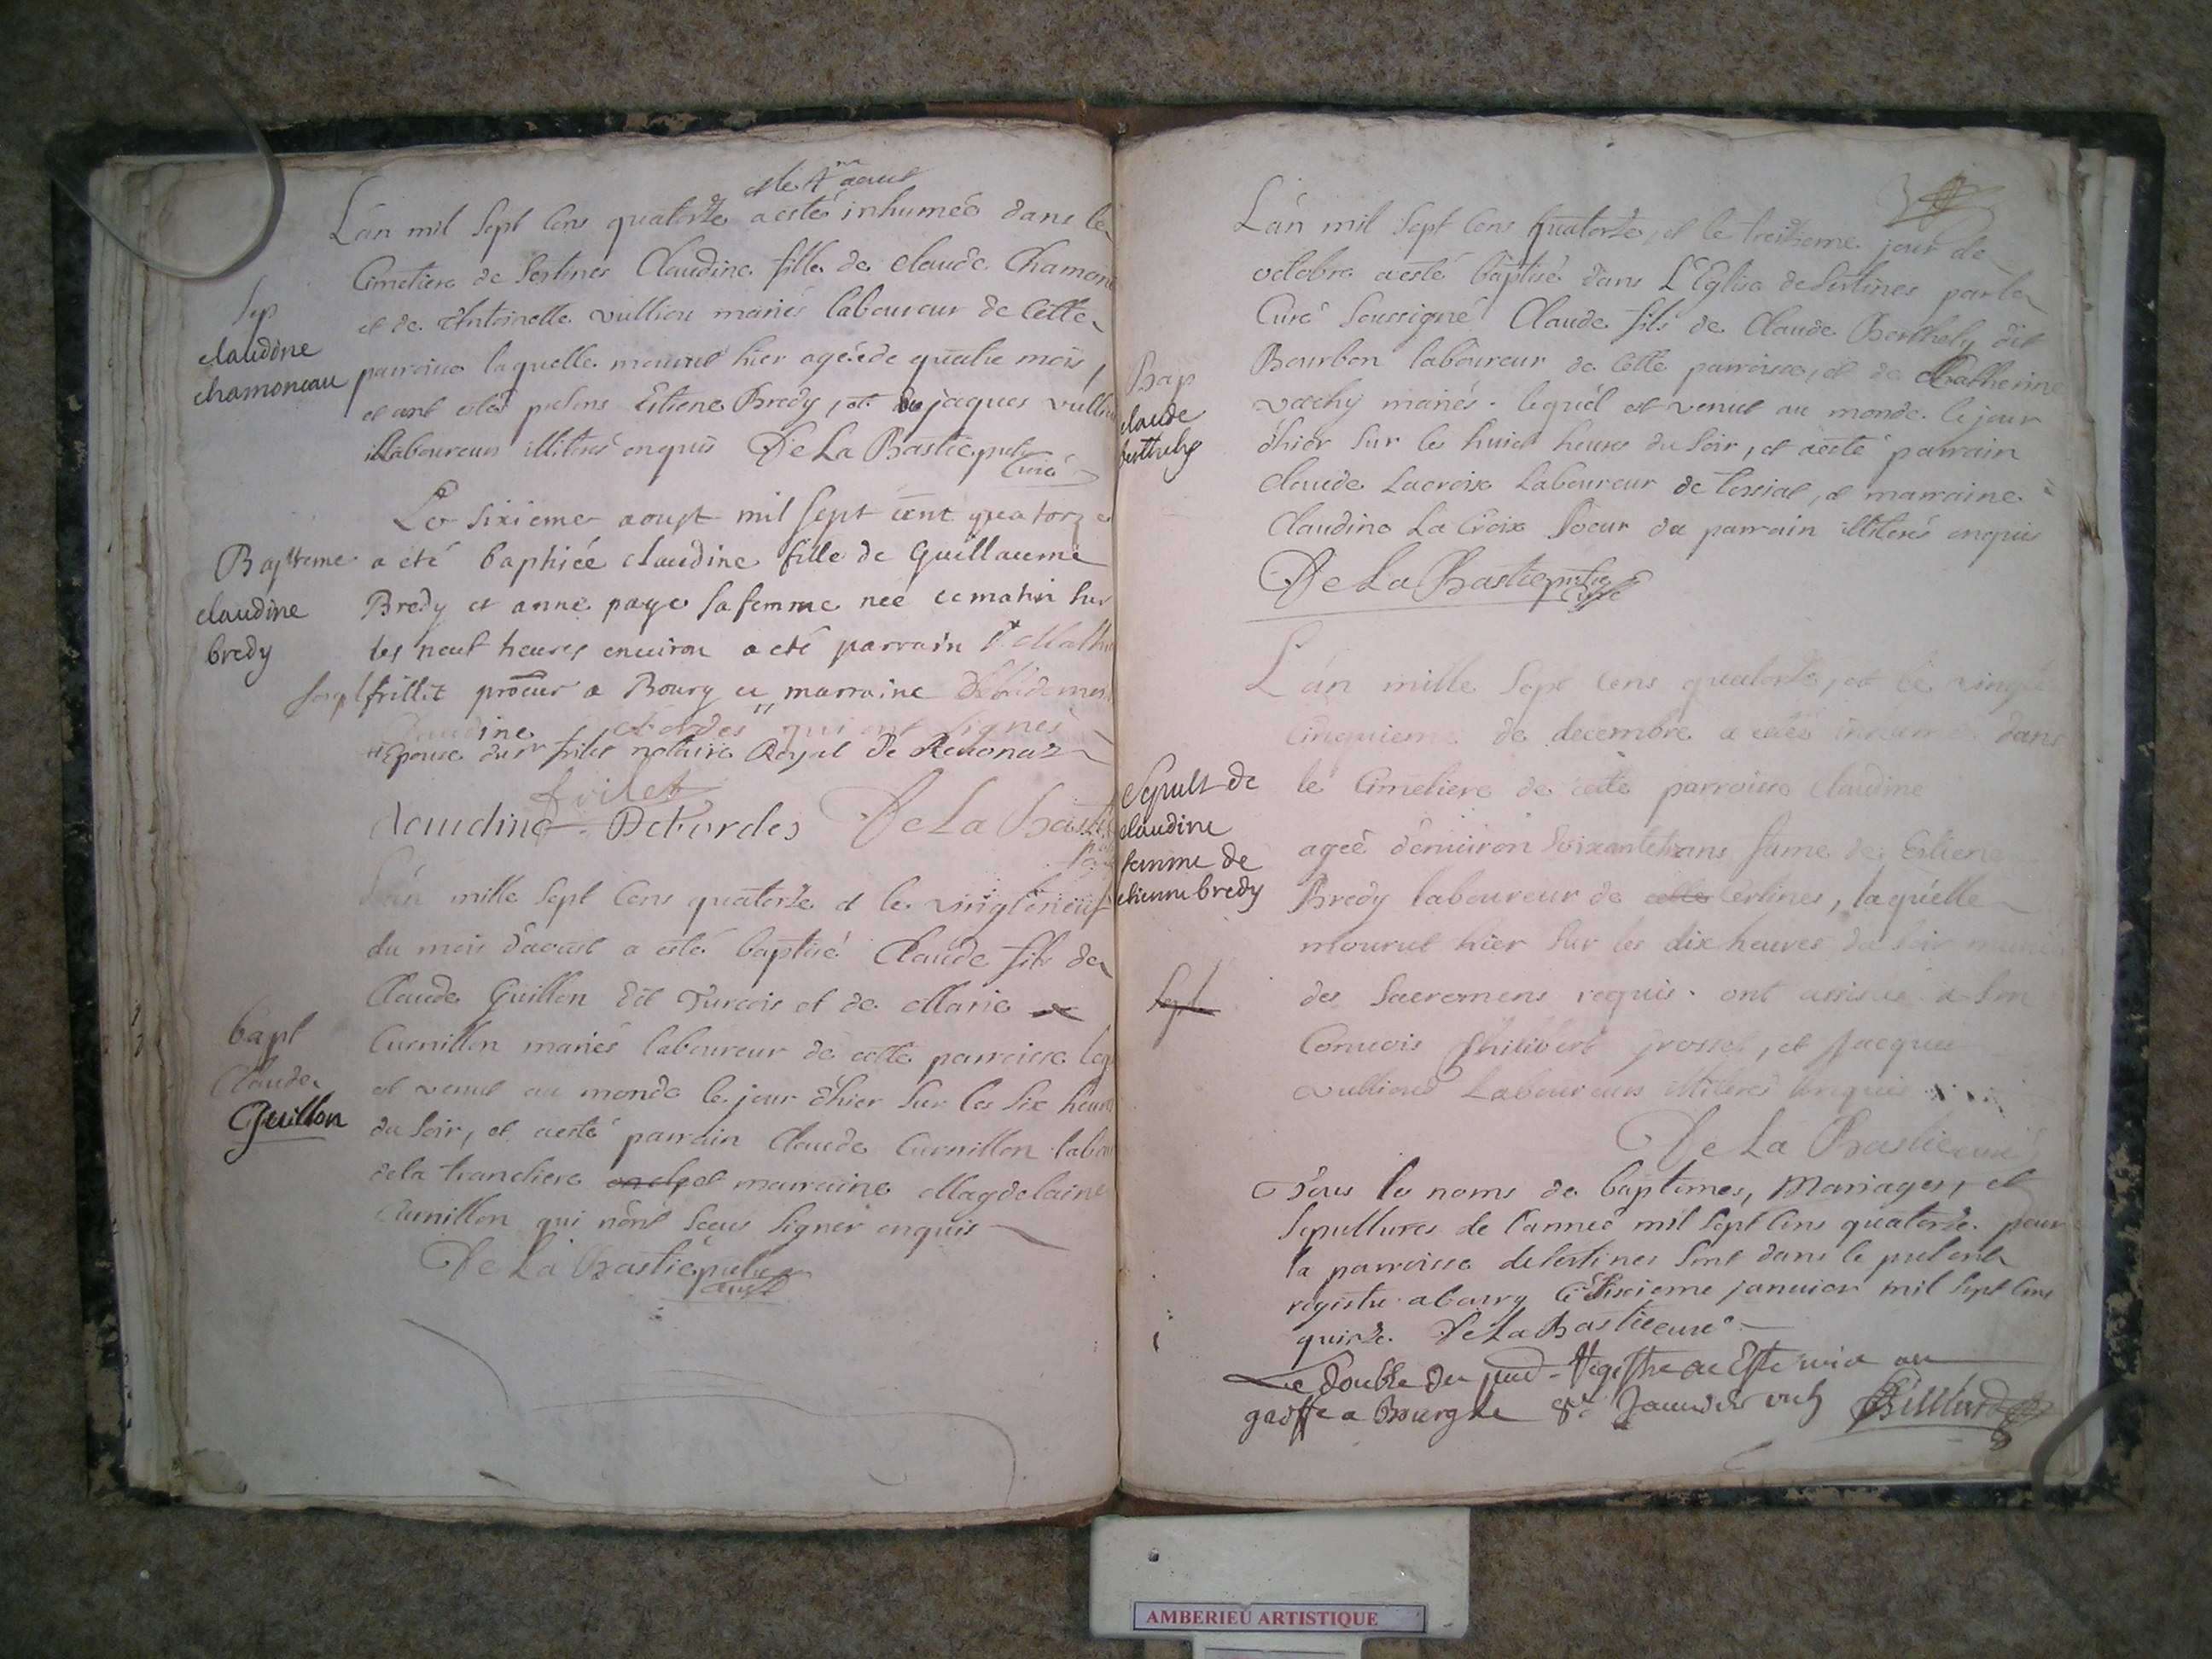 et le 4me aoust
L'an mil sept cens quatorze a estée inhumée dans le
Cimetiere de Sertines Claudine fille de Claude Chamon
et de Antoinelle vulliou mariés laboureur de cette
parroisse laquelle mourut hier agée de quatre mois,
et ont estés presens Estiene Bredy, et jaques vulliou
laboureurs illiterés enquis De La Bastie prêt
Curé
Sep
claudine
chamoneau
Le sixieme aoust mil sept cent quatorze
a été baptisée claudine fille de Guillaume
Bredy et anne page sa femme née ce matin sur
les neuf heures environ a été parrain Sr Math
Joseph frillet procur a Bourg et marraine
Claudine deBordes qui ont signés
Epouse du sr frilet notaire Royal de Revonaz
frilet
claudine DeBordes De La Basti
Baptteme
claudine
bredy
L'an mille sept cens quatorze et le vingt neuf
du mois d'aoust a esté baptisé Claude fils de
Claude Guillon dit Turcois et de Marie
Curnillon mariés laboureur de cette parroisse leq
est venut au monde le jour d'hier sur les six heures
du soir, et a esté parrain Claude Curnillon labou
de la trancliere et marraine Magdelaine
Curnillon qui n'ont sceus signer enquis
De La Bastie
curé
bapt
Claude
Guillon
3
L'an mil sept cens quatorze, et le treizieme jour de
octobre a esté baptisé dans L'Eglise de Sertines par le
Curé soussigné Claude fils de Claude Berthely dit
Bourbon laboureur de cette parroisse, et de Catherine
vachy mariés. lequel est venut au monde le jour
d'hier sur les huict heures du soir, et a esté parrain
Claude Lacroix Laboureur de Tossiat, et marraine
Claudine La Croix soeur du parrain illiterés enquis
De La Bastie
Bap
claude
berthely
L'an mille sept cens quatorze, et le vingt
cinquieme de decembre a estée inhumée dans
le Cimetiere de cette parroisse Claudine
agée d'environ soixante ans fame de Estiene
Bredy laboureur de Sertines, laquelle
mourut hier sur les dix heures du soir munie
des sacremens requis. ont assistés a son
Convois Philibert grosset, et Jacques
vulliout Laboureurs illiterés enquis
De La Bastie curé
Sepult de
claudine
femme de
etienne bredy
Sept
Tous les noms de baptemes, Mariages, et
sepultures de l'année mil sept cens quatorze pour
la parroisse de Sertines sont dans le present
registre a bourg ce sixieme janvier mil sept cens
quinze. De La Bastie curé
Le double du pnd Registre a Esté mis au
greffe a Bourg le 8e Janvier Billiard
AMBERIEU ARTISTIQUE